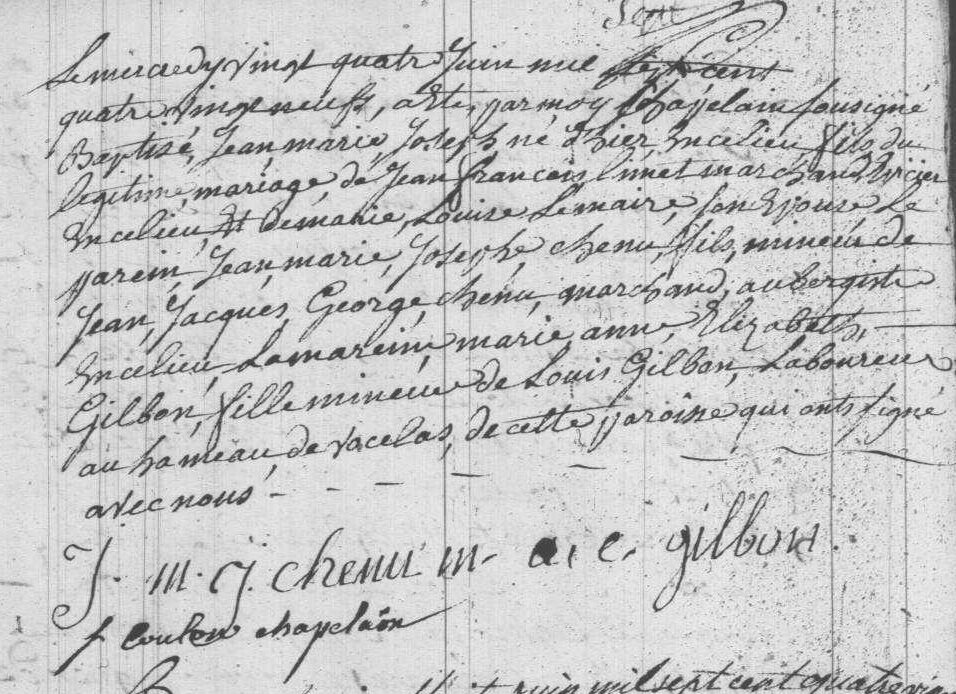 Sept
Le mercredy vingt quatre Juin mil sept cent
quatre vingt neufs, a Ete, par moy Chappelain sousigné
Baptisé, Jean, marie, Joseph né D'hier, En ce lieu, fils du
legitime, mariage, de Jean francois limet marchand Epicier
En ce lieu, Et De marie, Louise Lemaire, son Epouse Le
parein, Jean, marie, Josephe, chenu, fils, mineur de
Jean, Jacques, George, chenu, marchand, aubergiste
En ce lieu, La mareine, marie, anne, Elizabeth,
Gilbon, fille mineure de Louis Gilbon, Laboureur
au hameau, de vacelas, de cette paroisse qui onts signé
avec nous
J. m. j. chenu m. a. e. gilbon.
f coulon chapelain
juin mil sept cent quatre vin